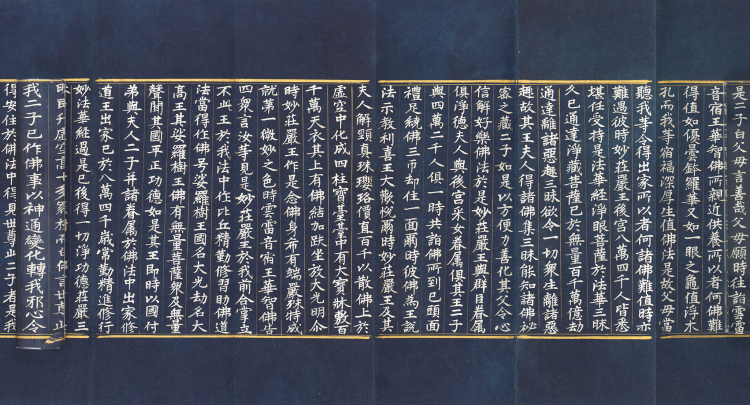 是二子白父母言善哉父母願時往詣雲雷
音宿王華智佛所親近供養所以者何佛難
得值如優曇鉢羅華又如一眼之龜值浮木
孔而我等宿福深厚生值佛法是故父母當
聽我等令得出家所以者何諸佛難值時亦
難遇彼時妙莊嚴王後宮八萬四千人皆悉
堪任受持是法華經淨眼菩薩於法華三昧
久已通達淨藏菩薩已於無量百千萬億劫
通達離諸惡趣三昧欲令一切眾生離諸惡
趣故其王夫人得諸佛集三昧能知諸佛祕
密之藏二子如是以方便力善化其父令心
信解好樂佛法於是妙莊嚴王與群臣眷屬
俱淨德夫人與後宮采女眷屬俱其王二子
與四萬二千人俱一時共詣佛所到已頭面
禮足繞佛三帀却住一面爾時彼佛為王說
法示教利喜王大歡悅爾時妙莊嚴王及其
夫人解頸真珠瓔珞價直百千以散佛上於
虛空中化成四柱寶臺臺中有大寶牀敷百
千萬天衣其上有佛結加趺坐放大光明尒
時妙莊嚴王作是念佛身希有端嚴殊特成
就第一微妙之色時雲雷音宿王華智佛告
四眾言汝等見是妙莊嚴王於我前合掌立
不此王於我法中作比丘精勤修習助佛道
法當得作佛号娑羅樹王國名大光劫名大
高王其娑羅樹王佛有無量菩薩眾及無量
聲聞其國平正功德如是其王即時以國付
弟與夫人二子并諸眷屬於佛法中出家修
道王出家已於八萬四千歲常勤精進修行
妙法華經過是已後得一切淨功德莊嚴三
昇虛空高七多羅樹而白佛言世尊此
我二子已作佛事以神通變化轉我邪心令
得安住於佛法中得見世尊此二子者是我